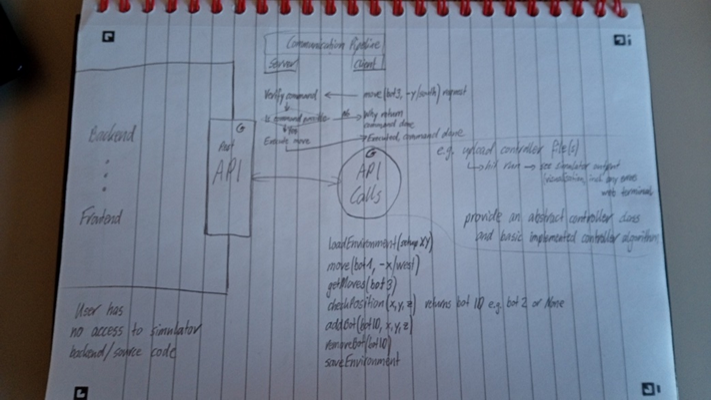 Communication Pipeline
Server
Client
Verify command
move(bot3, -y/south) request
is command possible
No
Why return
command done
Yes
Execute move
Executed, command done
Backend
Frontend
G
Rest
API
G
API
Calls
e.g. upload controller file(s)
hit run → see simulator output
(visualisation, incl. any errors
web terminal)
provide an abstract controller class
and basic implemented controller algorithm
loadEnvironment(setup XY)
move(bot1, -x/west)
getMoves(bot3)
checkPosition(x,y,z) returns bot ID e.g. bot 2 or None
addBot(botID, x,y,z)
removeBot(botID)
saveEnvironment
User has
no access to simulator
backend/source code